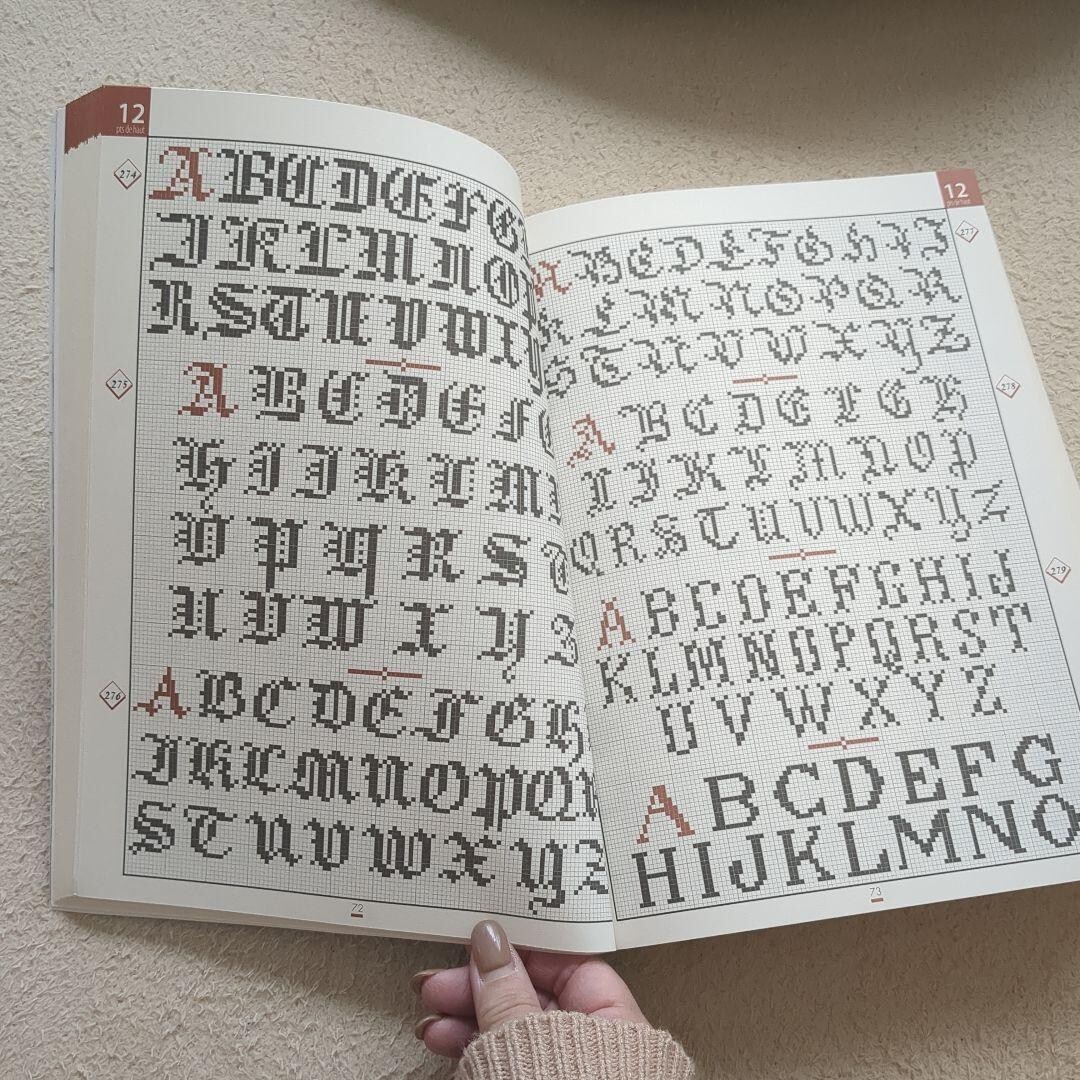 12
pts de haut
274
A B C D E F G
I J K L M N O
R S T U V W X
275
A B C D E F
H I J K L M
O P Q R S T
U V W X Y Z
276
A B C D E F G H
I J K L M N O P Q
S T U V W X Y Z
72
12
pts de haut
277
A B C D E F G H I J
K L M N O P Q R
S T U V W X Y Z
278
A B C D E F G H
I J K L M N O P
Q R S T U V W X Y Z
279
A B C D E F G H I J
K L M N O P Q R S T
U V W X Y Z
A B C D E F G
H I J K L M N O
73